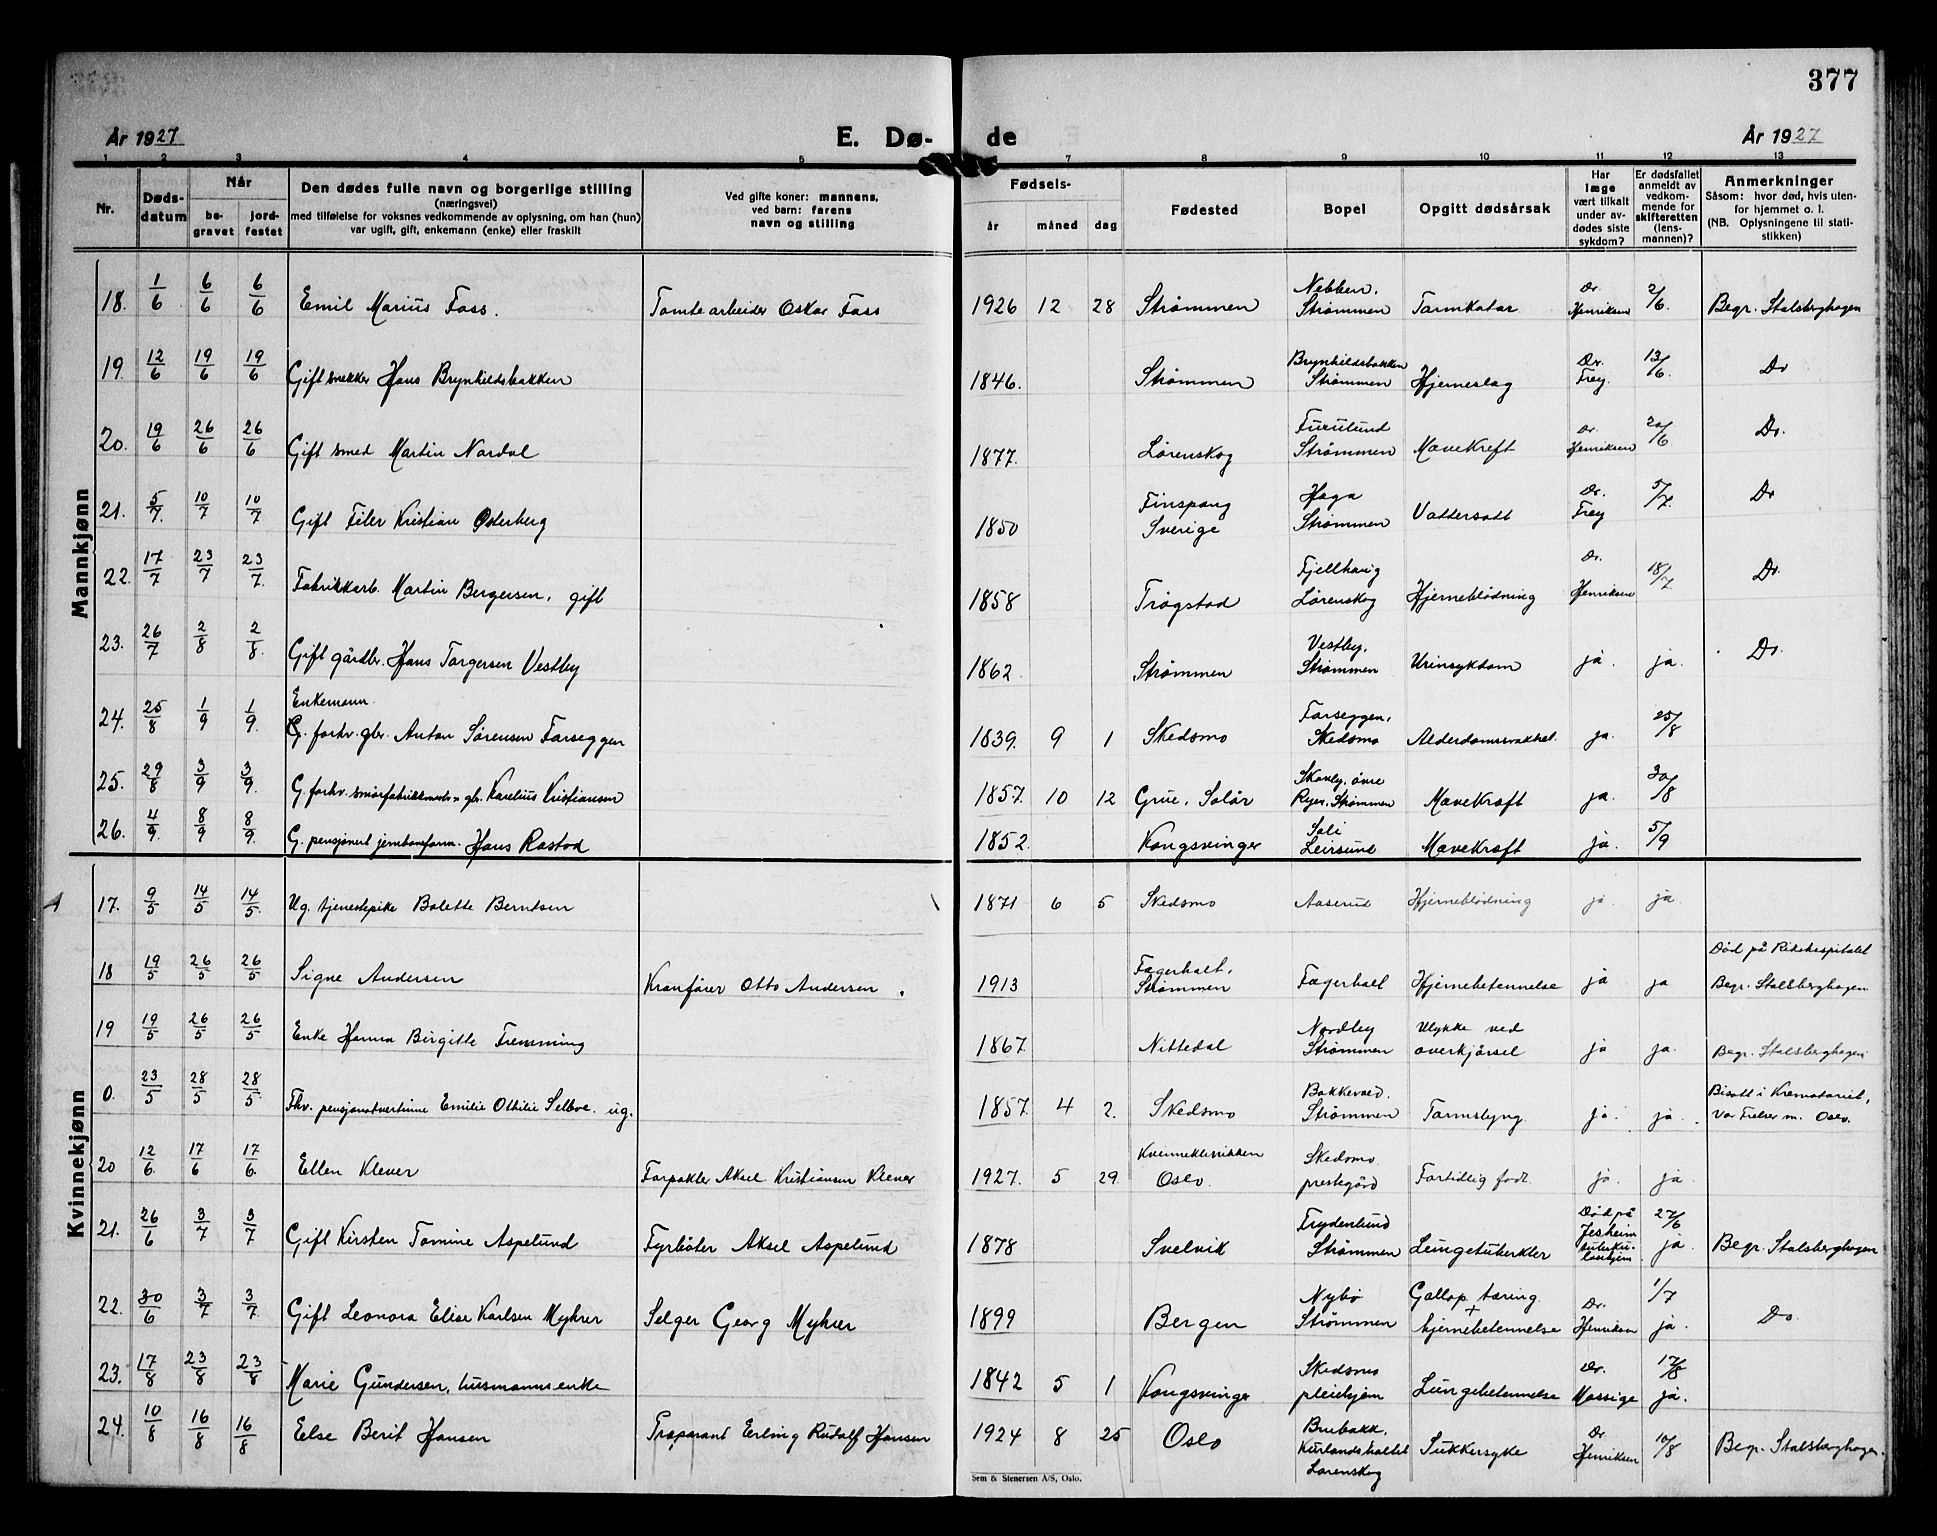 377
År 1927 E. Dø- de År 1927
1 2 3 4 5 7 8 9 10 11 12 13
Nr. Døds-datum Når be-gravet jord-festet Den dødes fulle navn og borgerlige stilling (næringsvei) med tilføielse for voksnes vedkommende av oplysning, om han (hun) var ugift, gift, enkemann (enke) eller fraskilt Ved gifte koner: mannens, ved barn: farens navn og stilling Fødsels- år måned dag Fødested Bopel Opgitt dødsårsak Har læge vært tilkalt under av-dødes siste sykdom? Er dødsfallet anmeldt av vedkom-mende for skifteretten (lens-mannen)? Anmerkninger Såsom: hvor død, hvis uten-for hjemmet o. l. (NB. Oplysningene til stati-stikken)
Mannkjønn
18. 1/6 6/6 6/6 Emil Marius Foss. Tomtearbeider Oskar Foss 1926 12 28 Strømmen Nebben, Strømmen Tarmkatar Dr. Henriksen 2/6. Begr. Stalsberghagen
19. 12/6 19/6 19/6 Gift snekker Hans Brynhildsbakken 1846. Strømmen Brynhildsbakken Strømmen Hjerneslag Dr. Frey. 13/6. Do
20. 19/6 26/6 26/6 Gift smed Martin Nordal 1877. Lørenskog Furulund Strømmen Mavekreft Dr. Henriksen 20/6 Do.
21. 5/7. 10/7 10/7 Gift Filer Kristian Østerberg 1850 Finspang Sverige Haga Strømmen Vattersott Dr. Frey 5/7. Do
22. 17/7 23/7 23/7. Fabrikkarb. Martin Bergersen, gift 1858 Trøgstad Fjellhaug Lørenskog Hjerneblødning Dr. Henriksen 18/7. Do.
23. 26/7 2/8 2/8. Gift gårdbr. Hans Torgersen Vestby 1862 Strømmen Vestby, Strømmen Urinsykdom ja. ja. Do.
24. 25/8 1/9 1/9. Enkemann. G. forhv. gbr. Anton Sørensen Farseggen 1839. 9 1 Skedsmo Farseggen, Skedsmo Alderdomssvakhet. ja. 25/8
25. 29/8 3/9 3/9. G. forhv. smørfabrikkmester gbr. Karelius Kristiansen 1857. 10 12 Grue, Solør Skovly, övre Ryen, Strømmen Mavekreft ja. 30/8
26. 4/9. 8/9 8/9. G. pensjonert jernbaneform. Hans Rastad 1852. Kongsvinger Soli Leirsund Mavekreft ja. 5/9
Kvinnekjønn
17. 9/5 14/5 14/5. Ug. tjenestepike Bolette Berntsen 1871 6 5 Skedsmo Aaserud Hjerneblødning ja. ja
18 19/5 26/5 26/5 Signe Andersen Kranfører Otto Andersen. 1913 Fagerholt, Strømmen Fagerholt Hjernebetennelse ja ja Død på Rikshospitalet Begr. Stalsberghagen
19 19/5 26/5 26/5 Enke Hanna Birgitte Fremming 1867. Nittedal Nordby Strømmen Ulykke ved overkjørsel ja ja. Begr. Stalsberghagen
0. 23/5 28/5 28/5. Fhv. pensjonatvertinne Emilie Othilie Selboe. ug. 1857. 4 2. Skedsmo Bakkevold. Strømmen Tarmslyng. ja. ja. Bisatt i Krematoriet, Vor Frelser m. Oslo.
20 12/6. 17/6 17/6. Ellen Klever Forpakter Aksel Kristiansen Klever 1927. 5 29. Kvinneklinikken Oslo. Skedsmo prestegård Fortidlig født. ja. ja.
21. 26/6 3/7 3/7 Gift Kirsten Tomine Aspelund Fyrbøter Aksel Aspelund 1878 Svelvik Frydenlund Strømmen Lungetuberkler Død på Jesheim tuberku-losehjem 27/6 ja. Begr. Stalsberghagen
22. 30/6 3/7 3/7. Gift Leonora Elise Karlsen Myhrer Selger Georg Myhrer 1899 Bergen Nybø Strømmen Gallop. tæring. + hjernebetennelse Dr. Henriksen 1/7 ja. Do.
23. 17/8 23/8 23/8 Marie Gundersen, husmannsenke 1842 5 1 Kongsvinger Skedsmo pleiehjem Lungebetennelse Dr. Mossige 17/8 ja.
24. 10/8 16/8 16/8 Else Berit Hansen Preparant Erling Rudolf Hansen 1924 8 25 Oslo Brubakk, Kurlandsfaltet Lørenskog Sukkersyke Dr. Henriksen 10/8 Begr. Stalsberghagen.
Sem & Stenersen A/S, Oslo.